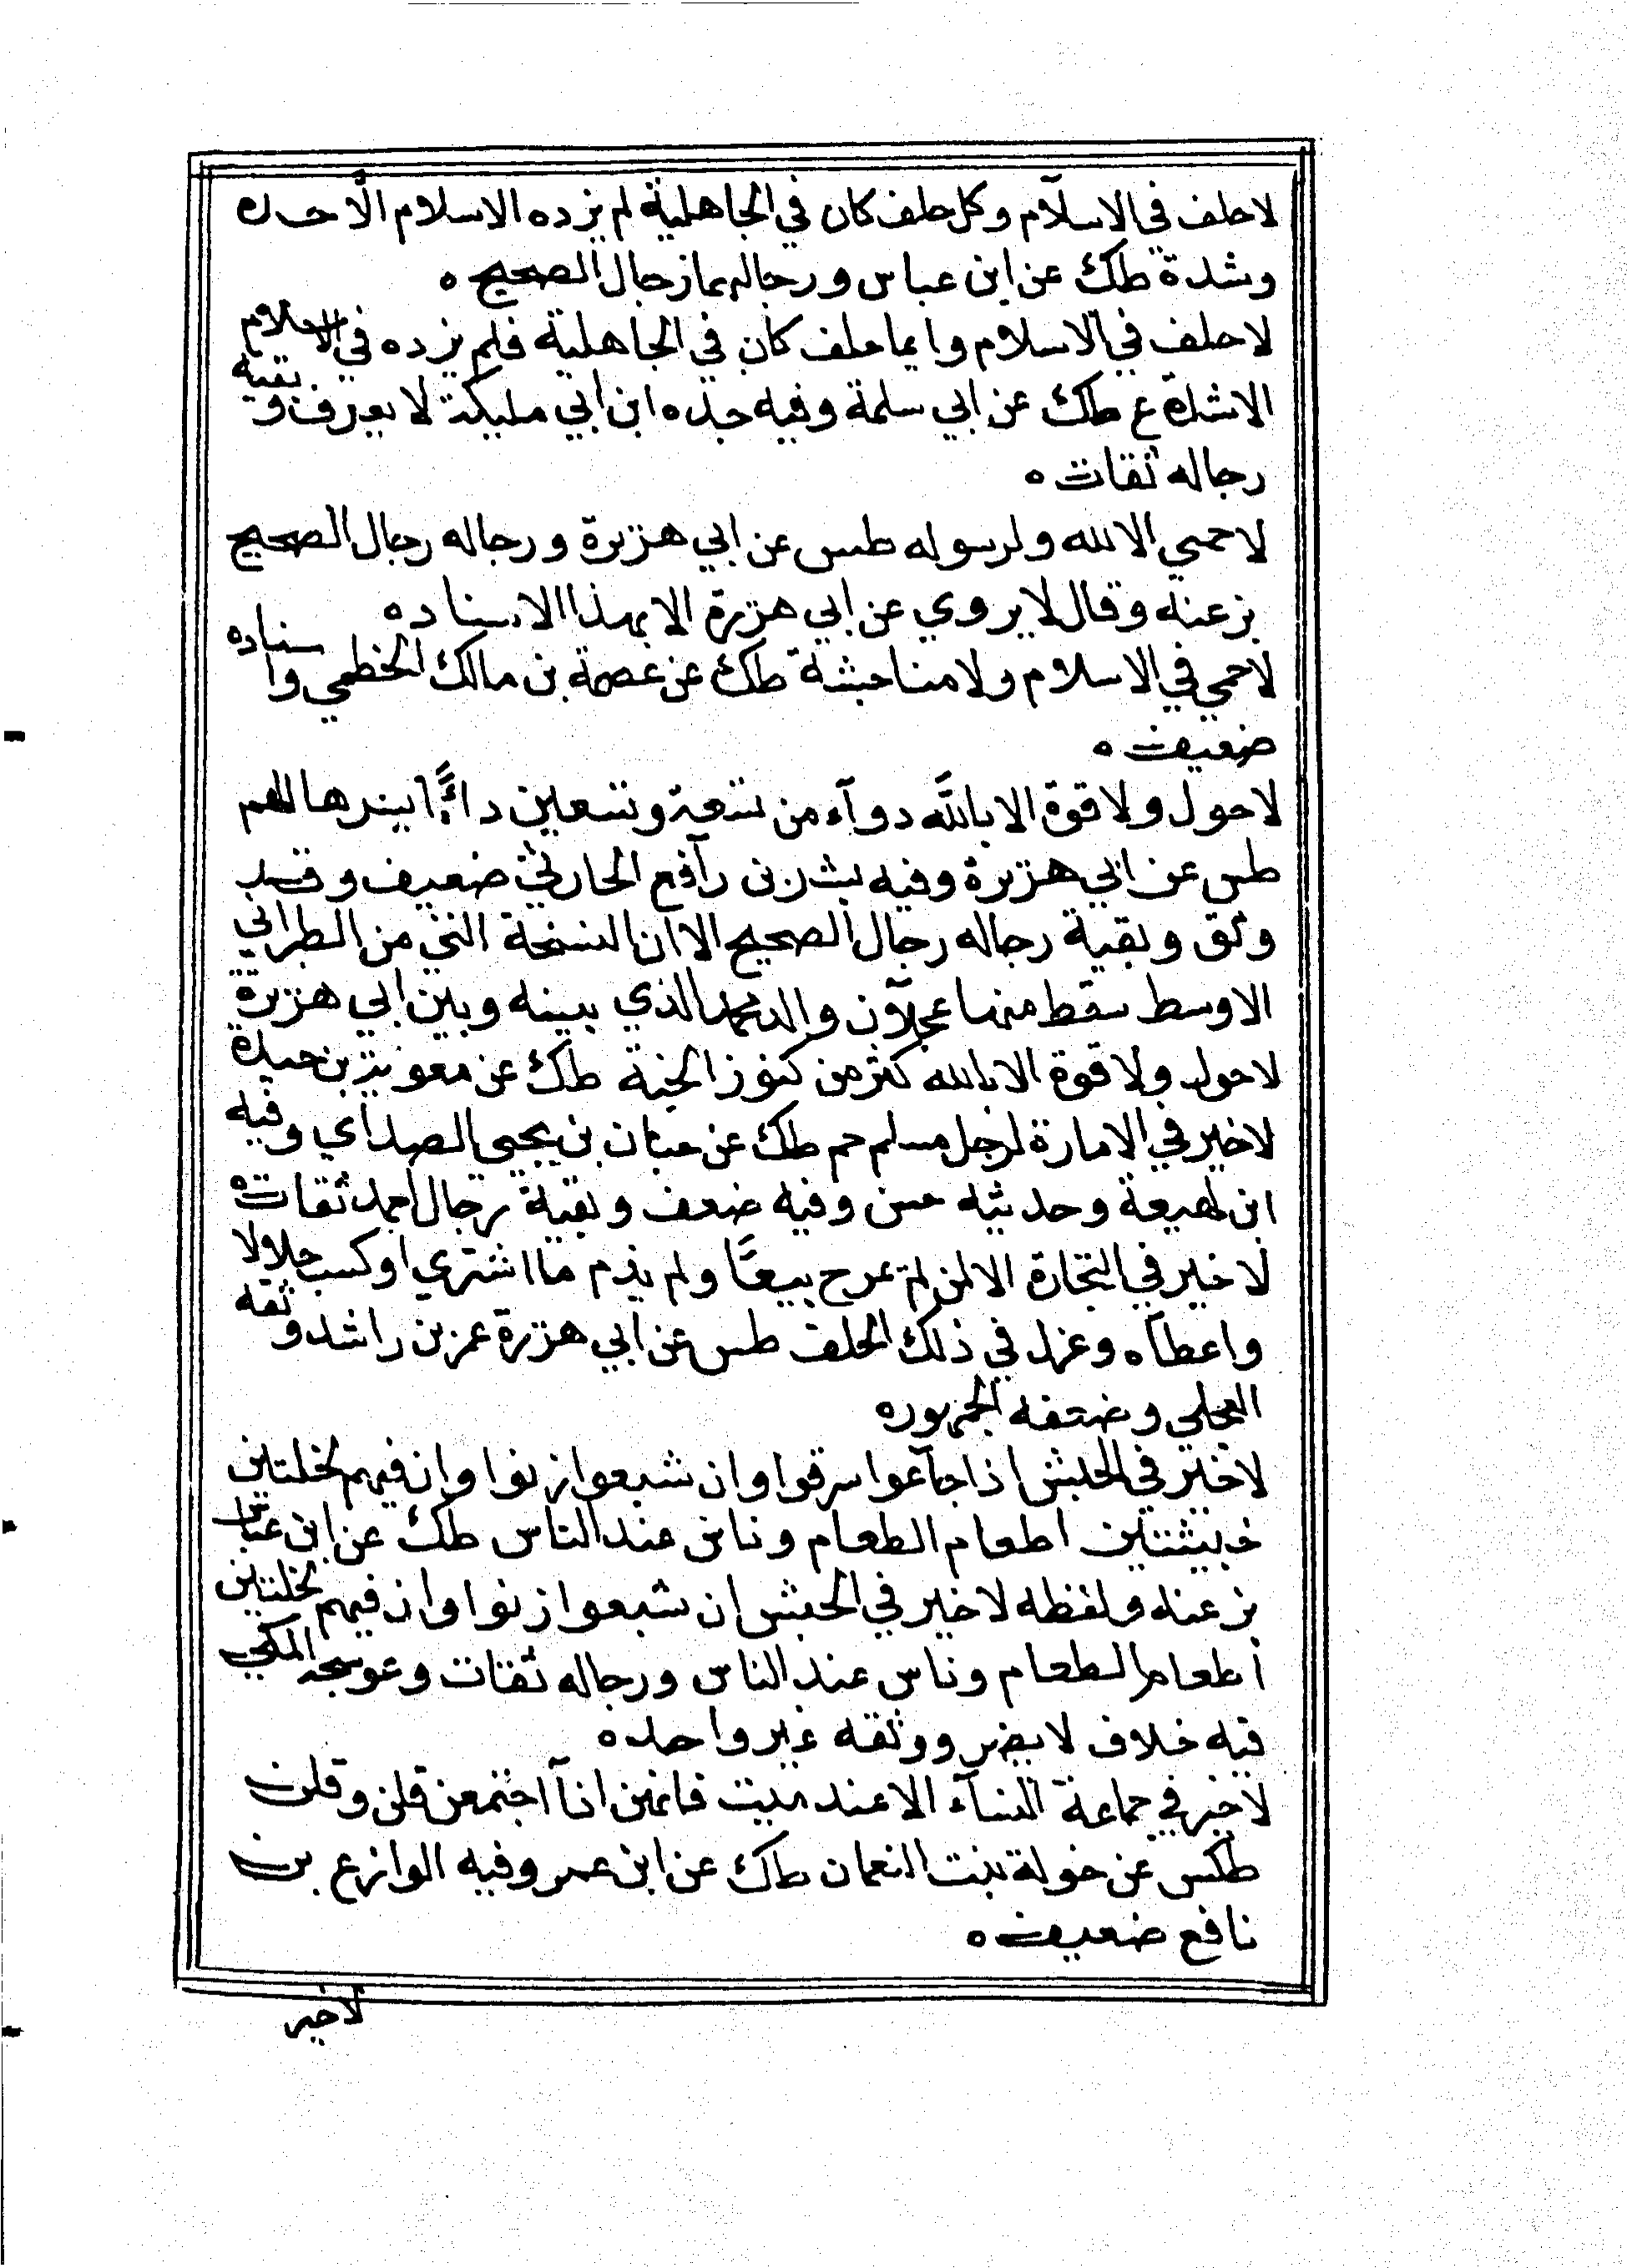 لا حلف في الاسلام وكل حلف كان في الجاهلية لم يزده الاسلام الا حدة
وشدة طك عن ابن عباس ورجالهما رجال الصحيح ه
لا حلف في الاسلام وايما حلف كان في الجاهلية فلم يزده في الاسلام
الا شدة ع طك عن ابي سلمة وفيه جده ابن ابي مليكة لا يعرف وبقية
رجاله ثقات ه
لا حمي الا لله ولرسوله طس عن ابي هريرة ورجاله رجال الصحيح
بز عنه وقال لا يروي عن ابي هريرة الا بهذا الاسناد ه
لا حمي في الاسلام ولا مناجشة طك عن عصمة بن مالك الخطمي واسناده
ضعيف ه
لا حول ولا قوة الا بالله دوآء من تسعة وتسعين دائًا ايسرها الهم
طس عن ابي هريرة وفيه بشر بن رآفع الحارثي ضعيف وقد
وثق وبقية رجاله رجال الصحيح الا ان النسخة التي من الطبراني
الاوسط سقط منها عجلآن والد محمد الذي بينه وبين ابي هريرة ه
لا حول ولا قوة الا بالله كنز من كنوز الجنة طك عن معوية بن حيدة
لا خير في الامارة لرجل مسلم حم طك عن حبان بن يحيي الصداي وفيه
ابن لهيعة وحديثه حسن وفيه ضعف وبقية رجال احمد ثقات ه
لا خير في التجارة الا لمن لم يمدح بيعًا ولم يذم ما اشتري او كسب حلالا
واعطاه وعزل في ذلك الحلف طس عن ابي هريرة عمر بن راشد وثقه
العجلي وضعفه الجمهور ه
لا خير في الحبش اذا جآعوا سرقوا وان شبعوا زنوا وان فيهم لخلتين
خبيثتين اطعام الطعام وناس عند الناس طك عن ابن عباس
بز عنه ولفظه لا خير في الحبش ان شبعوا زنوا وان فيهم لخلتين
اطعام الطعام وناس عند الناس ورجاله ثقات وعوسجه المكي
فيه خلاف لا يضر ووثقه غير واحد ه
لا خير في جماعة النسآء الا عند ميت فانهن اذآ اجتمعن قلن وقلن
طكس عن خولة بنت النعمان طك عن ابن عمر وفيه الوازع بن
نافع ضعيف ه
لا خير